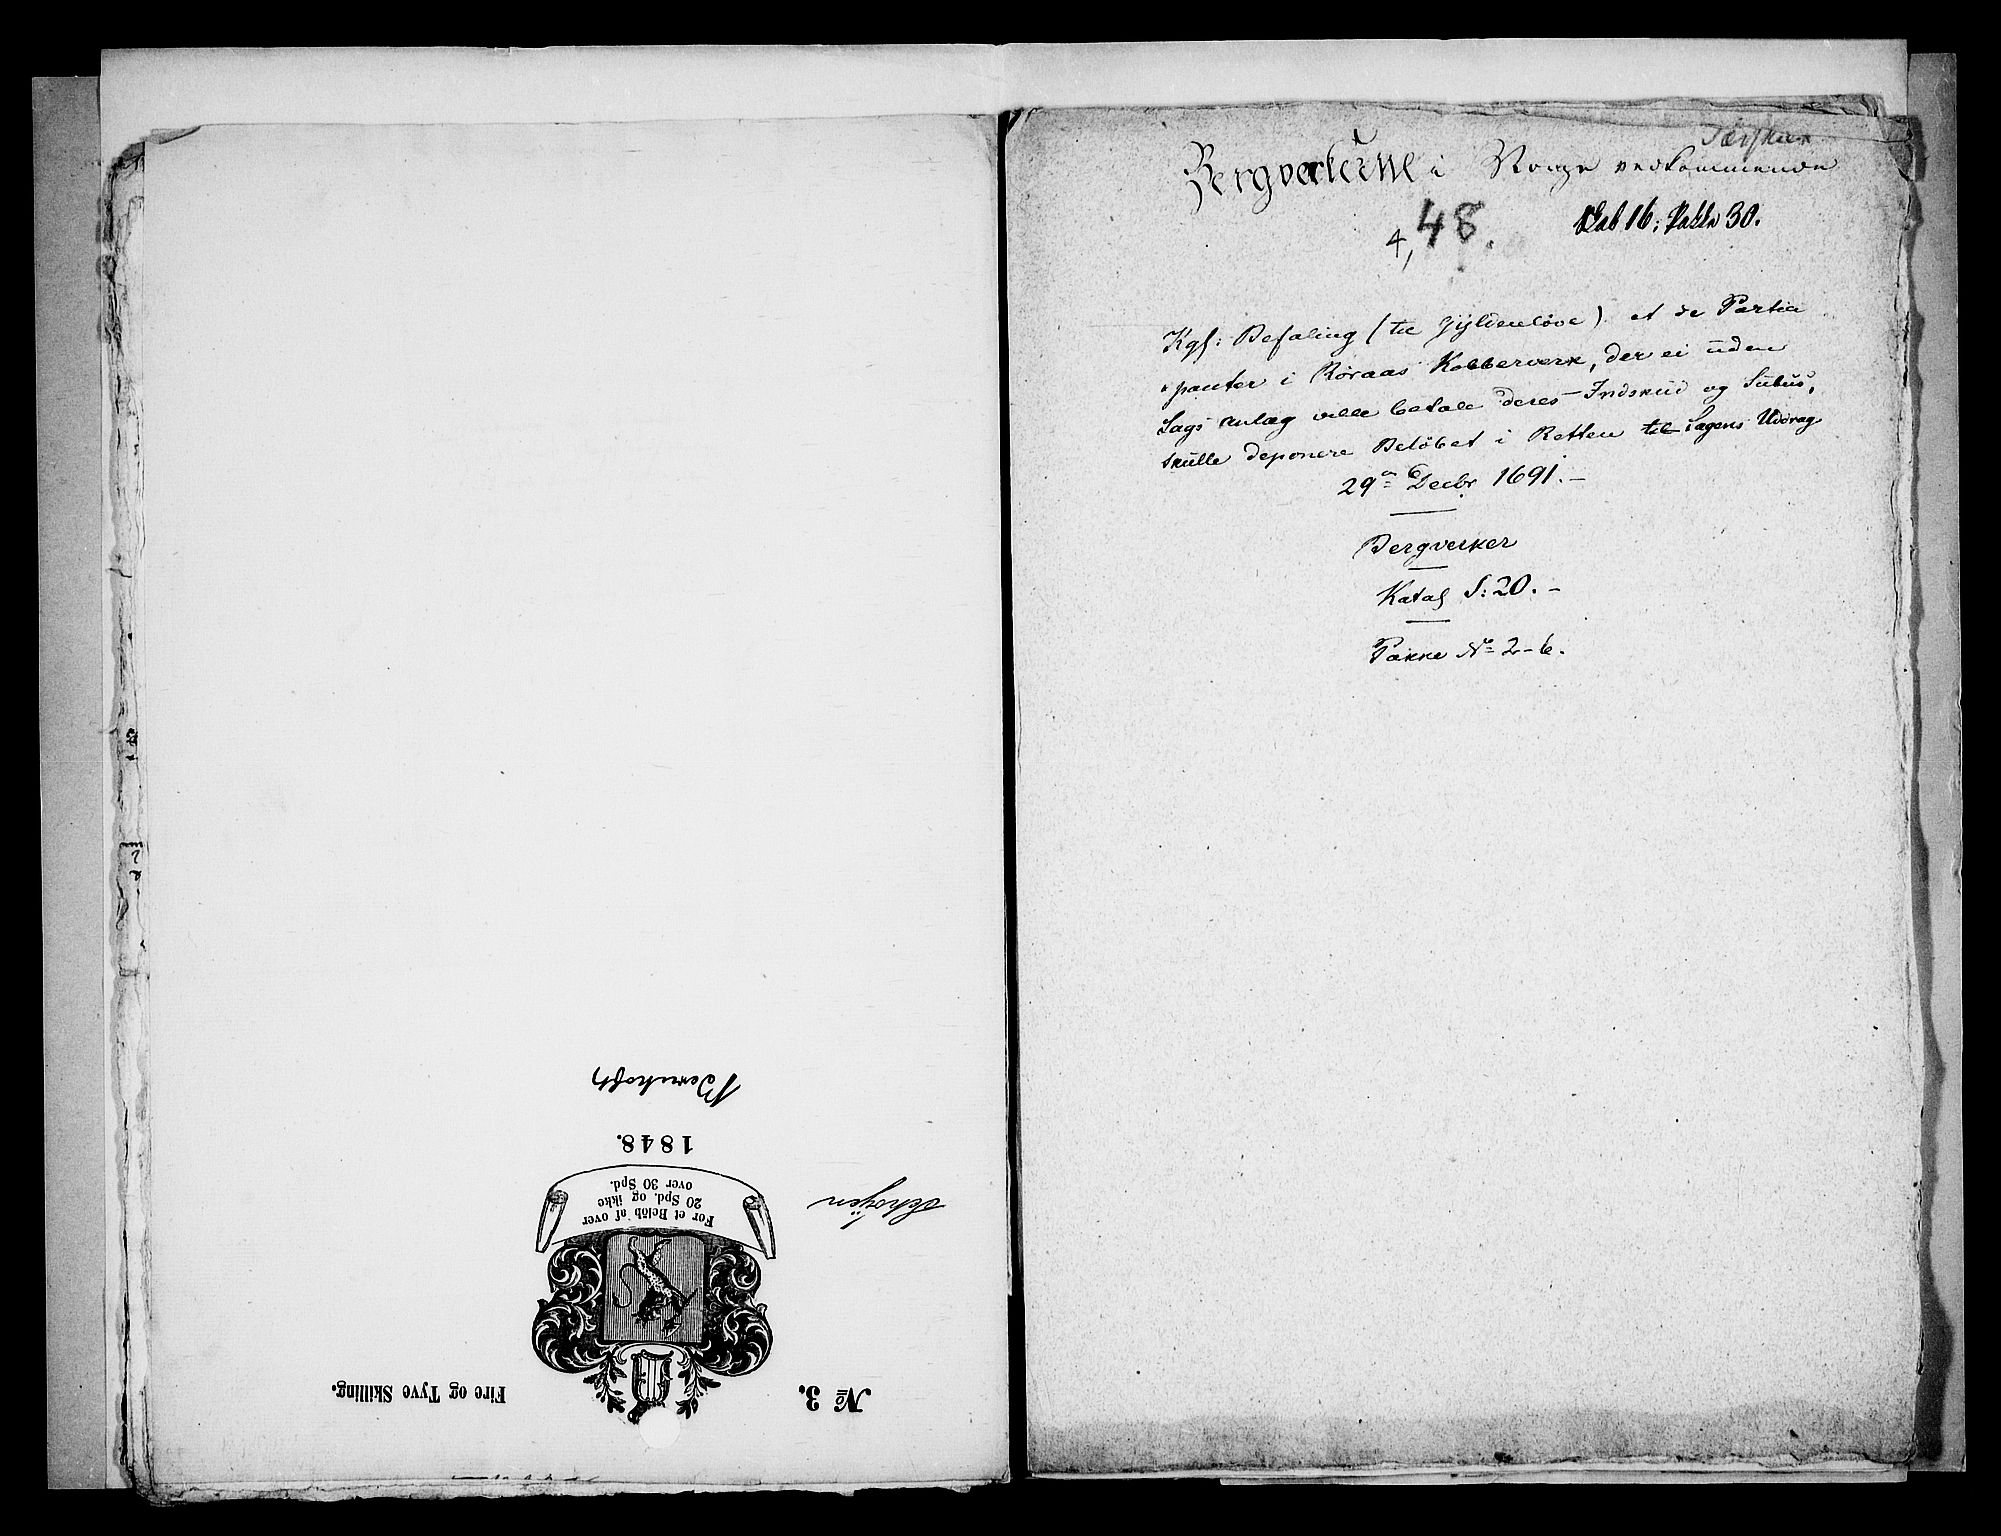 Bernhoft
1848.
For et Beløb af over
20 Spd. og ikke
over 30 Spd.
No 3.
Fire og Tyve Skilling.
Bergverkerne i Norge vedkommende
4, 48.
16; Pakke 30.
Kgl: Befaling (til Gyldenløve) at de Partici
pauter i Røraas Kobberverk, der ei uden
Sags anlæg ville betale deres Indskud og
skulle deponere Beløbet i Retten til Sagens Uddrag
29de Decbr 1691.-
Bergverker
Katal S: 20.-
Pakke No 2-6.